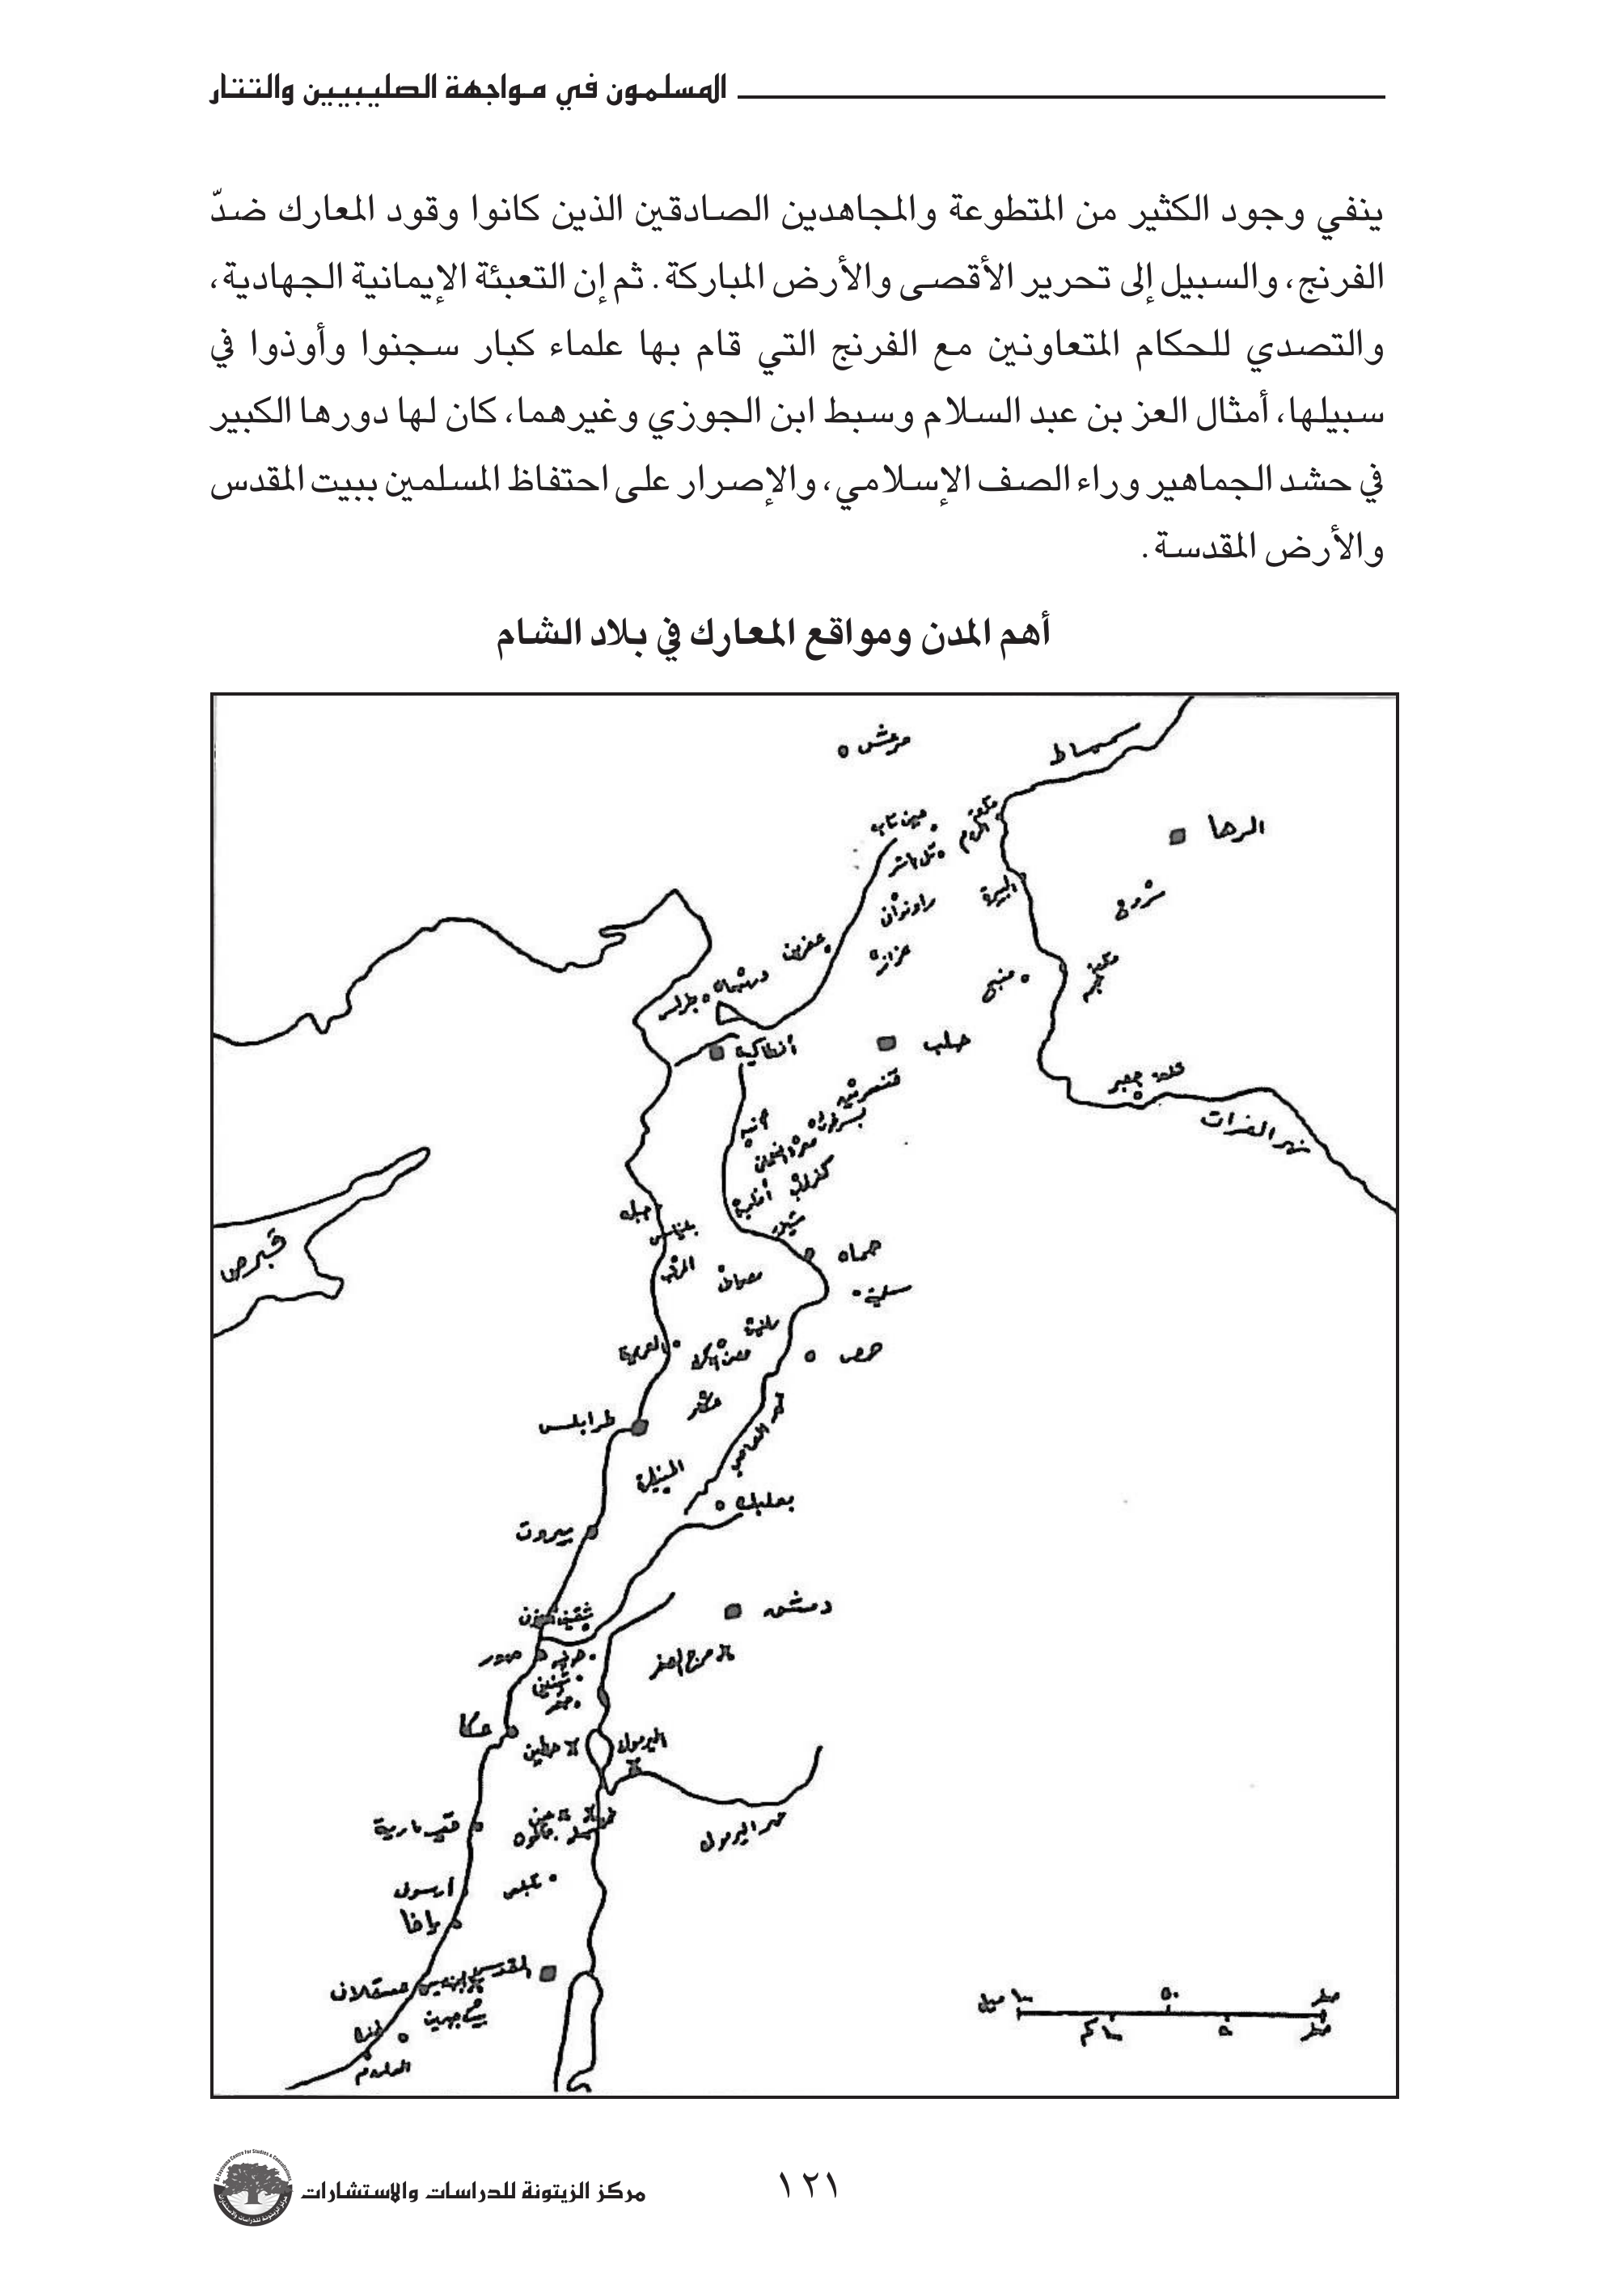 المسلمون في مواجهة الصليبيين والتتار
ينفي وجود الكثير من المتطوعة والمجاهدين الصادقين الذين كانوا وقود المعارك ضدّ
الفرنج، والسبيل إلى تحرير الأقصى والأرض المباركة. ثم إن التعبئة الإيمانية الجهادية،
والتصدي للحكام المتعاونين مع الفرنج التي قام بها علماء كبار سجنوا وأوذوا في
سبيلها، أمثال العز بن عبد السلام وسبط ابن الجوزي وغيرهما، كان لها دورها الكبير
في حشد الجماهير وراء الصف الإسلامي، والإصرار على احتفاظ المسلمين ببيت المقدس
والأرض المقدسة.
أهم المدن ومواقع المعارك في بلاد الشام
مرعش
الرها
عين تاب
تل باشر
البيرة
عزاز
منبج
حلب
أنطاكية
قلعة جعبر
نهر الفرات
قبرص
شيزر
حماه
حمص
طرابلس
نهر العاصي
بعلبك
بيروت
دمشق
مرج الصفر
صور
عكا
حطين
اليرموك
نهر اليرموك
قيسارية
أرسوف
نابلس
يافا
المقدس
عسقلان
غزة
الداروم
١٠٠ ميل
٥٠
صفر
١٠٠ كم
٥٠
صفر
مركز الزيتونة للدراسات والاستشارات
١٢١